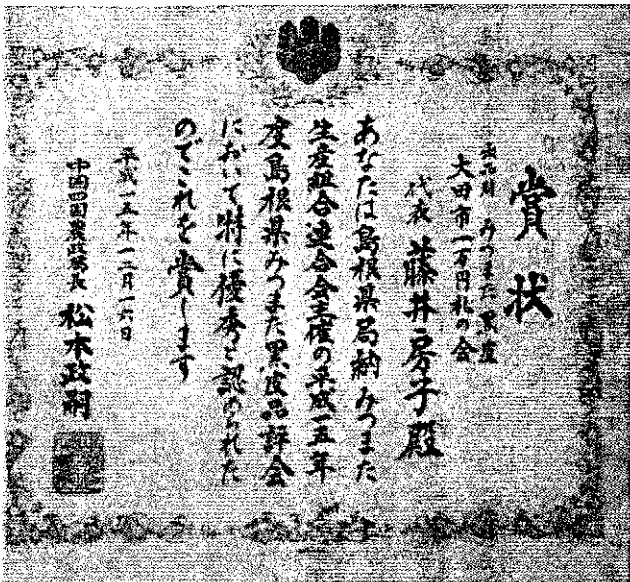 賞状
出品財 みつまた黒皮
大田市一万円札の会
代表 藤井房子殿
あなたは島根県局納みつまた
生産組合連合会主催の平成一五年
度島根県みつまた黒皮品評会
において特に優秀と認められた
のでこれを賞します
平成一五年一二月一六日
中国四国農政局長 松本政嗣